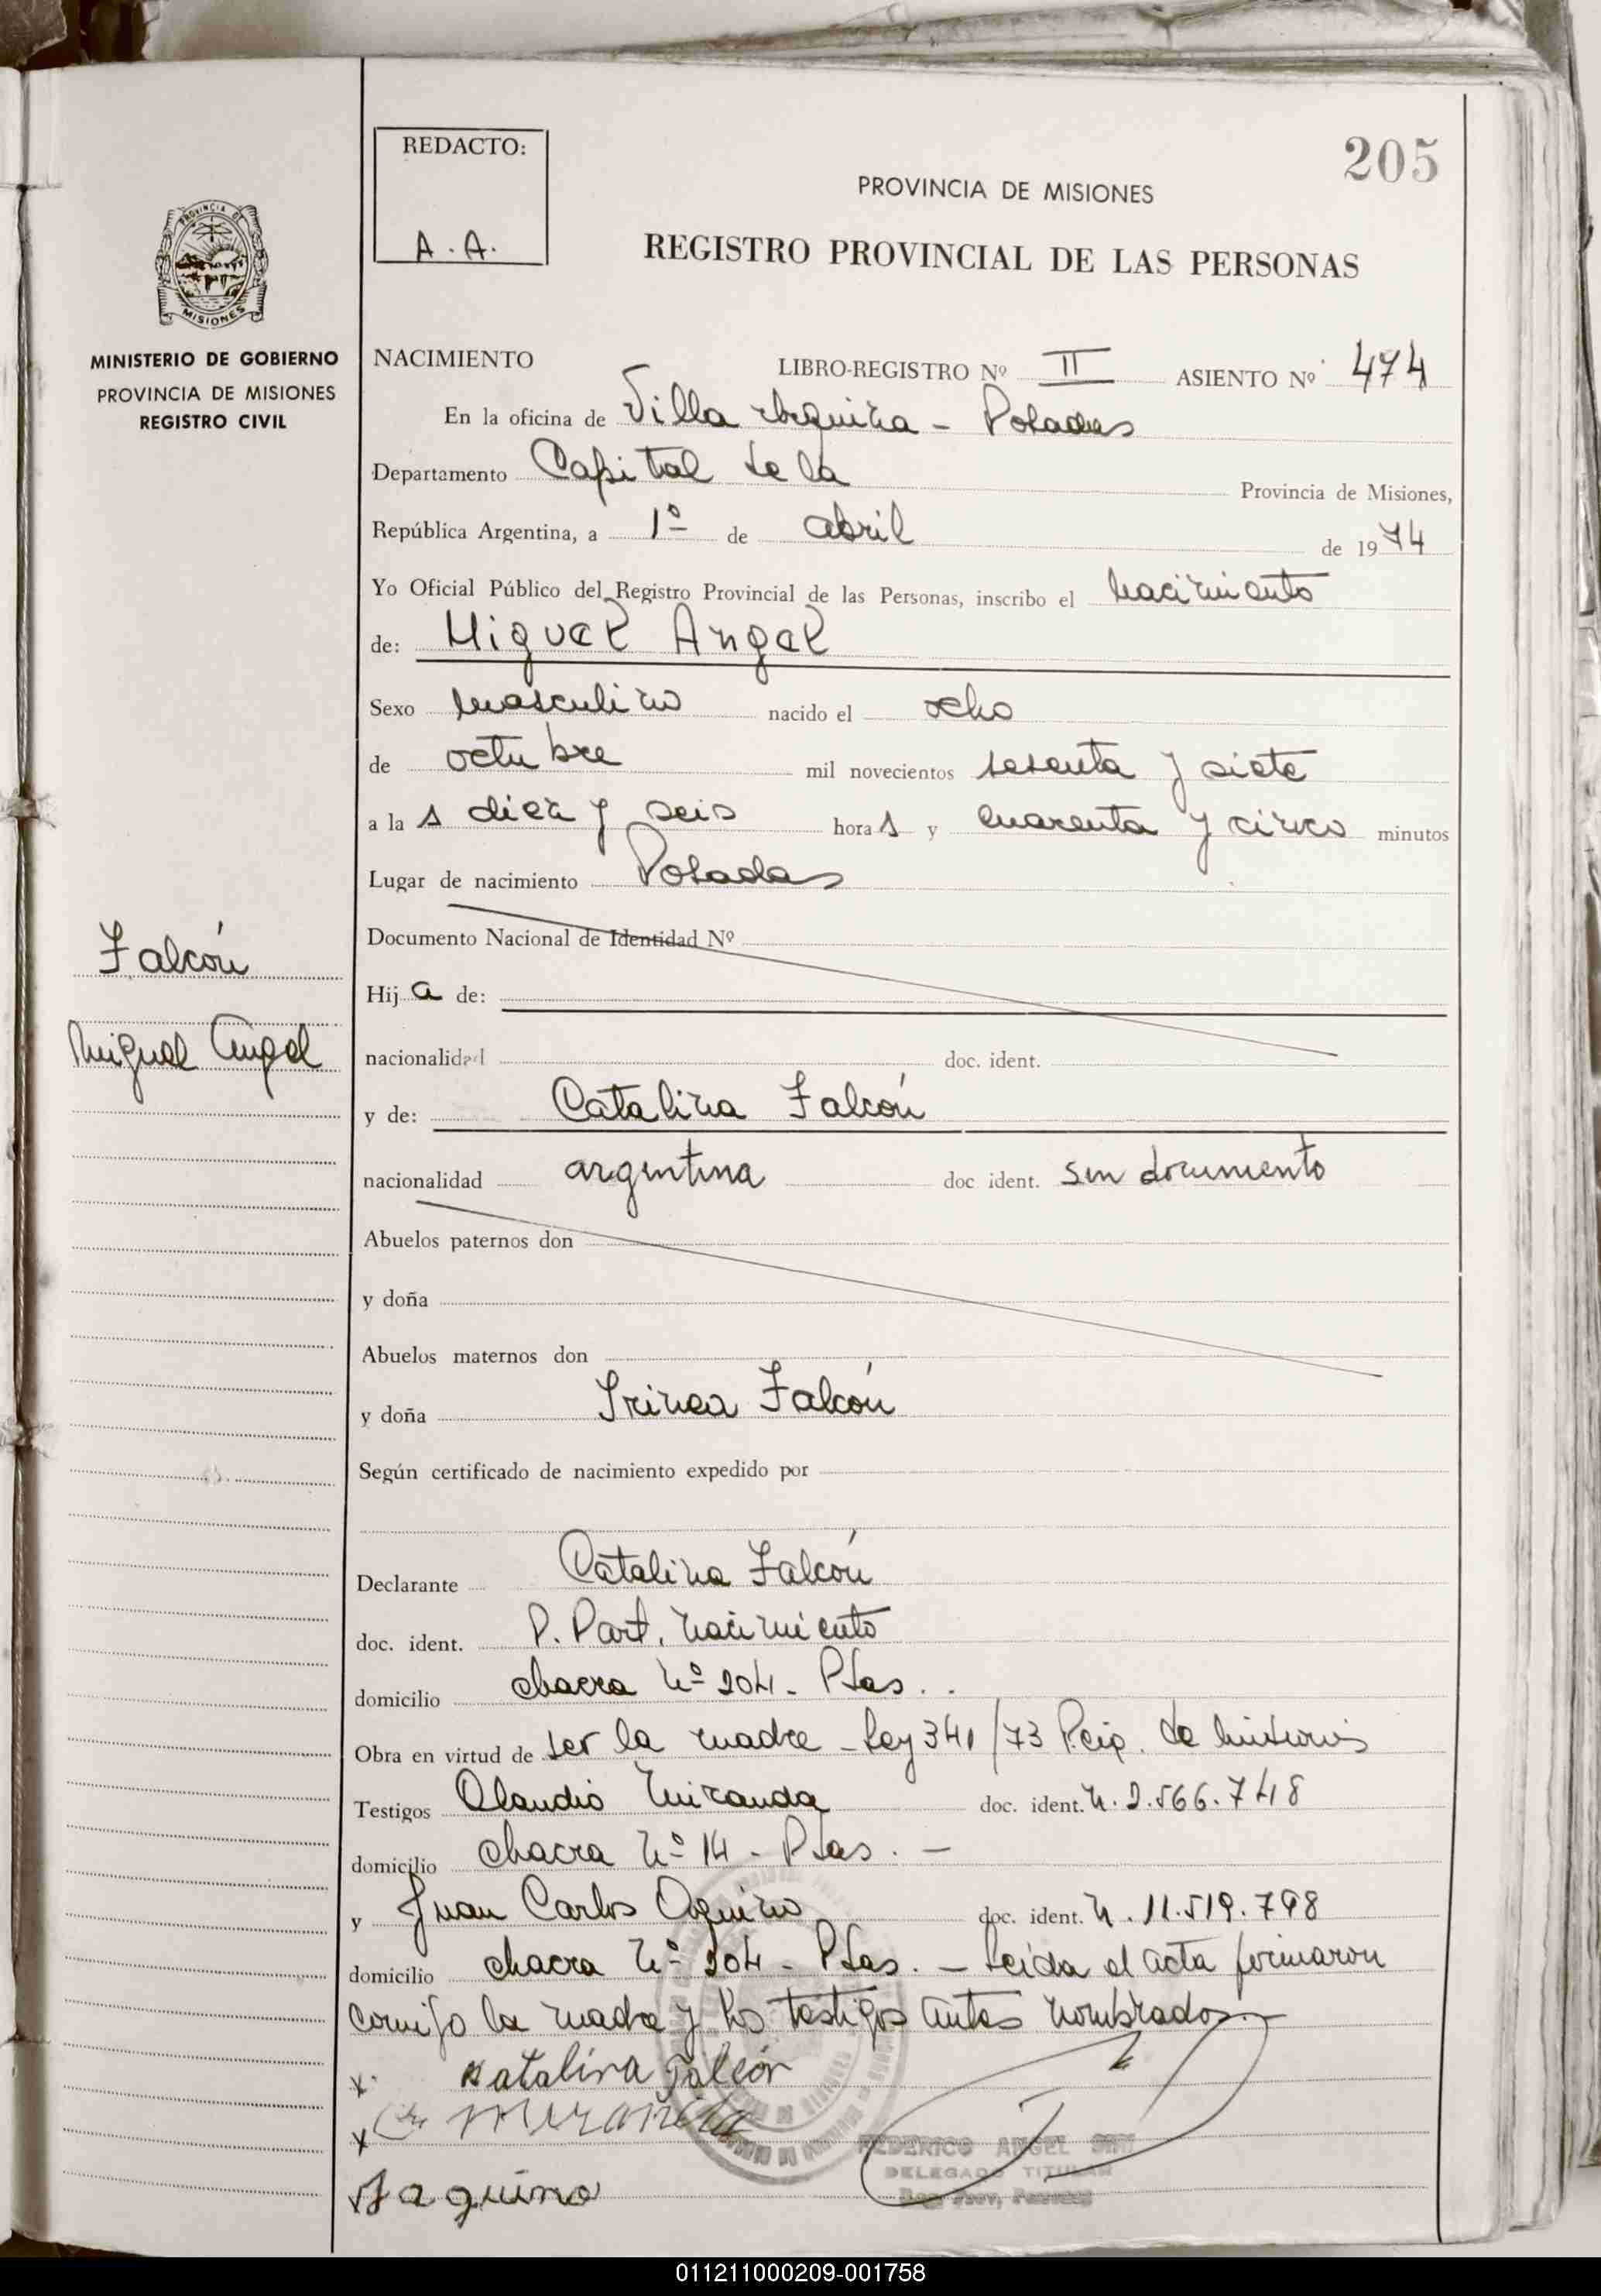 205
REDACTO:
A. A.
PROVINCIA DE MISIONES
REGISTRO PROVINCIAL DE LAS PERSONAS
PROVINCIA DE
MISIONES
MINISTERIO DE GOBIERNO
PROVINCIA DE MISIONES
REGISTRO CIVIL
NACIMIENTO LIBRO-REGISTRO Nº II ASIENTO Nº 474
En la oficina de Villa Urquiza - Posadas
Departamento Capital de la Provincia de Misiones,
República Argentina, a 1º de abril de 1974
Yo Oficial Público del Registro Provincial de las Personas, inscribo el nacimiento
de: Miguel Angel
Sexo masculino nacido el ocho
de octubre mil novecientos sesenta y siete
a la s diez y seis hora s y cuarenta y cinco minutos
Lugar de nacimiento Posadas
Documento Nacional de Identidad Nº
Falcón
Hij a de:
Miguel Angel
nacionalidad doc. ident.
y de: Catalina Falcón
nacionalidad argentina doc ident. sin documento
Abuelos paternos don
y doña
Abuelos maternos don
y doña Irinea Falcón
Según certificado de nacimiento expedido por
Declarante Catalina Falcón
doc. ident. P. Part. nacimiento
domicilio chacra nº 204 - Pdas.
Obra en virtud de ser la madre - Ley 341/73 Pcia. de Misiones
Testigos Claudio Miranda doc. ident. n. 2.566.748
domicilio chacra nº 14 - Pdas. -
y Juan Carlos Aquino doc. ident. n. 11.519.798
domicilio chacra nº 204 - Pdas. - Leida el acta firmaron
conmigo la madre y los testigos antes nombrados.-
x. Katalina Falcón
x Miranda
Jaquino
FEDERICO ANGEL
DELEGADO TITULAR
011211000209-001758